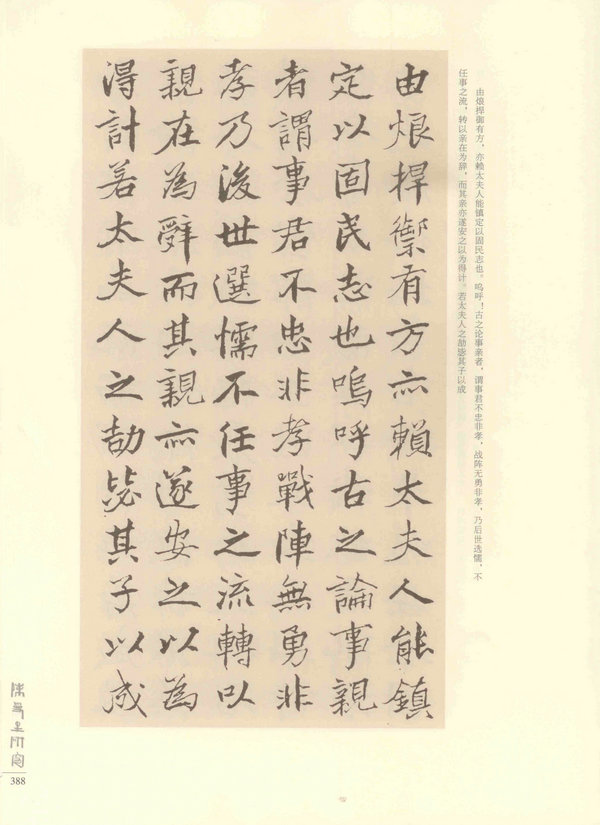 由烺捍御有方，亦赖太夫人能镇定以固民志也。呜呼！古之论事亲者，谓事君不忠非孝，战阵无勇非孝，乃后世选懦，不
任事之流，转以亲在为辞，而其亲亦遂安之以为得计。若太夫人之劼毖其子以成
由烺捍禦有方亦賴太夫人能鎮
定以固民志也嗚呼古之論事親
者謂事君不忠非孝戰陣無勇非
孝乃後世選懦不任事之流轉以
親在為辭而其親亦遂安之以為
得計若太夫人之劼毖其子以成
388